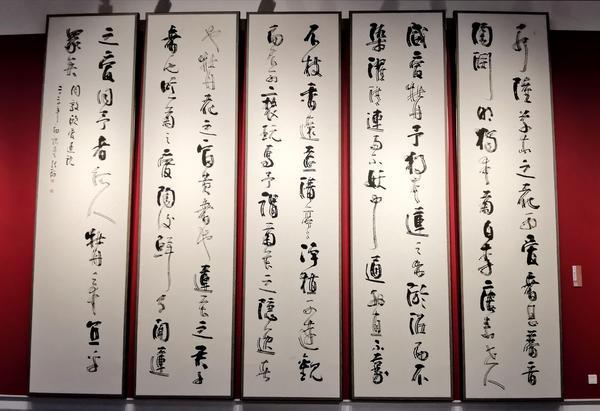 水陸草木之花可愛者甚蕃晉
陶淵明獨愛菊自李唐來世人
盛愛牡丹予獨愛蓮之出淤泥而不
染濯清漣而不妖中通外直不蔓
不枝香遠益清亭亭淨植可遠觀
而不可褻玩焉予謂菊花之隱逸者
也牡丹花之富貴者也蓮花之君子
者也噫菊之愛陶後鮮有聞蓮
之愛同予者何人牡丹之愛宜乎
眾矣 周敦頤愛蓮說